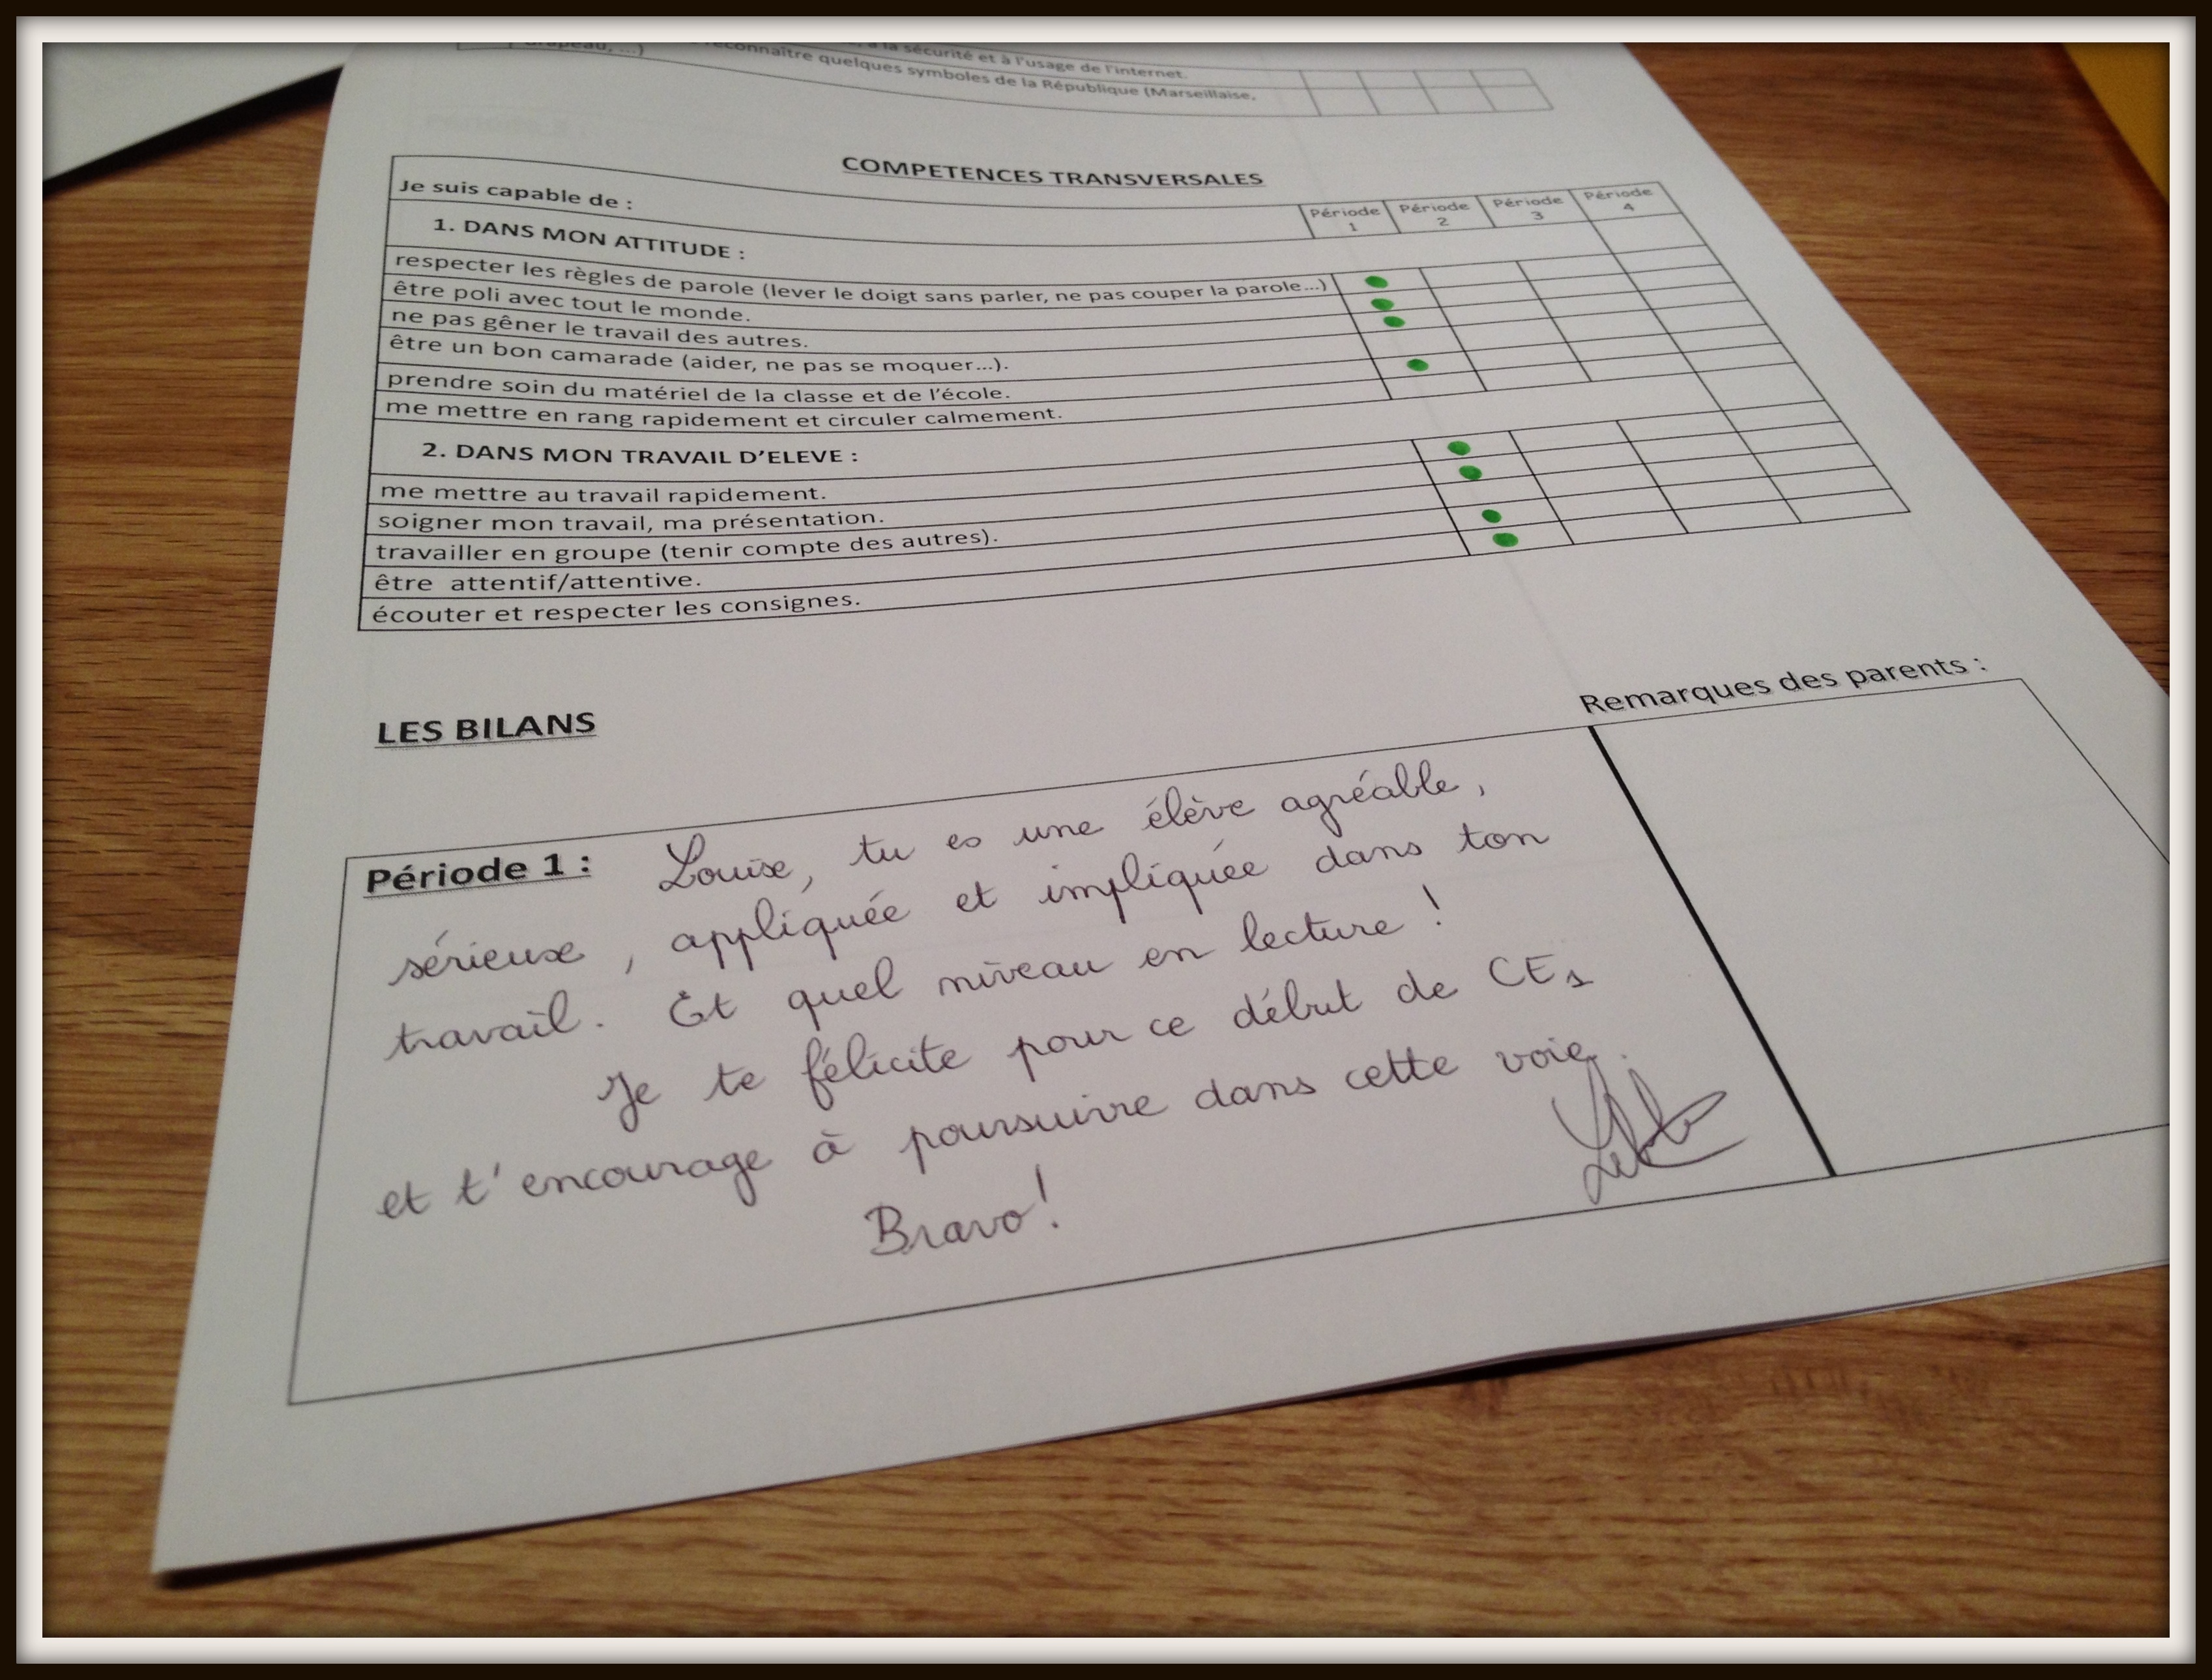 drapeau, ...)
reconnaître quelques symboles de la République (Marseillaise,
à la sécurité et à l'usage de l'internet.
COMPETENCES TRANSVERSALES
Je suis capable de :
Période 1 Période 2 Période 3 Période 4
1. DANS MON ATTITUDE :
respecter les règles de parole (lever le doigt sans parler, ne pas couper la parole...)
être poli avec tout le monde.
ne pas gêner le travail des autres.
être un bon camarade (aider, ne pas se moquer...).
prendre soin du matériel de la classe et de l'école.
me mettre en rang rapidement et circuler calmement.
2. DANS MON TRAVAIL D'ELEVE :
me mettre au travail rapidement.
soigner mon travail, ma présentation.
travailler en groupe (tenir compte des autres).
être attentif/attentive.
écouter et respecter les consignes.
LES BILANS
Remarques des parents :
Période 1 : Louise, tu es une élève agréable,
sérieuse, appliquée et impliquée dans ton
travail. Et quel niveau en lecture !
Je te félicite pour ce début de CE1
et t'encourage à poursuivre dans cette voie.
Bravo!